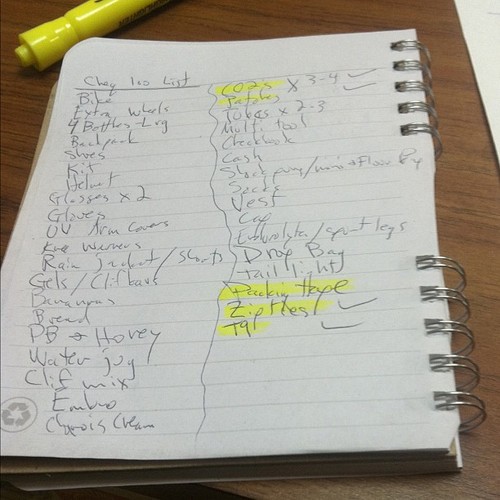 Cheq 100 List
Bike
Extra Wheels
4 Bottles - Lrg
Backpack
Shoes
Kit
Helmet
Glasses x 2
Gloves
UV Arm Covers
Knee Warmers
Rain Jacket / Shorts
Gels / Clif bars
Bananas
Bread
PB + Honey
Water jug
Clif mix
Embro
Chamois Cream
CO2s x 3-4
Patches
Tubes x 2-3
Multi tool
Checkbook
Cash
Shock pump / mini + Floor
Socks
Vest
Cap
Endurolytes / sport legs
Drop Bag
tail light
Packing tape
Zipties